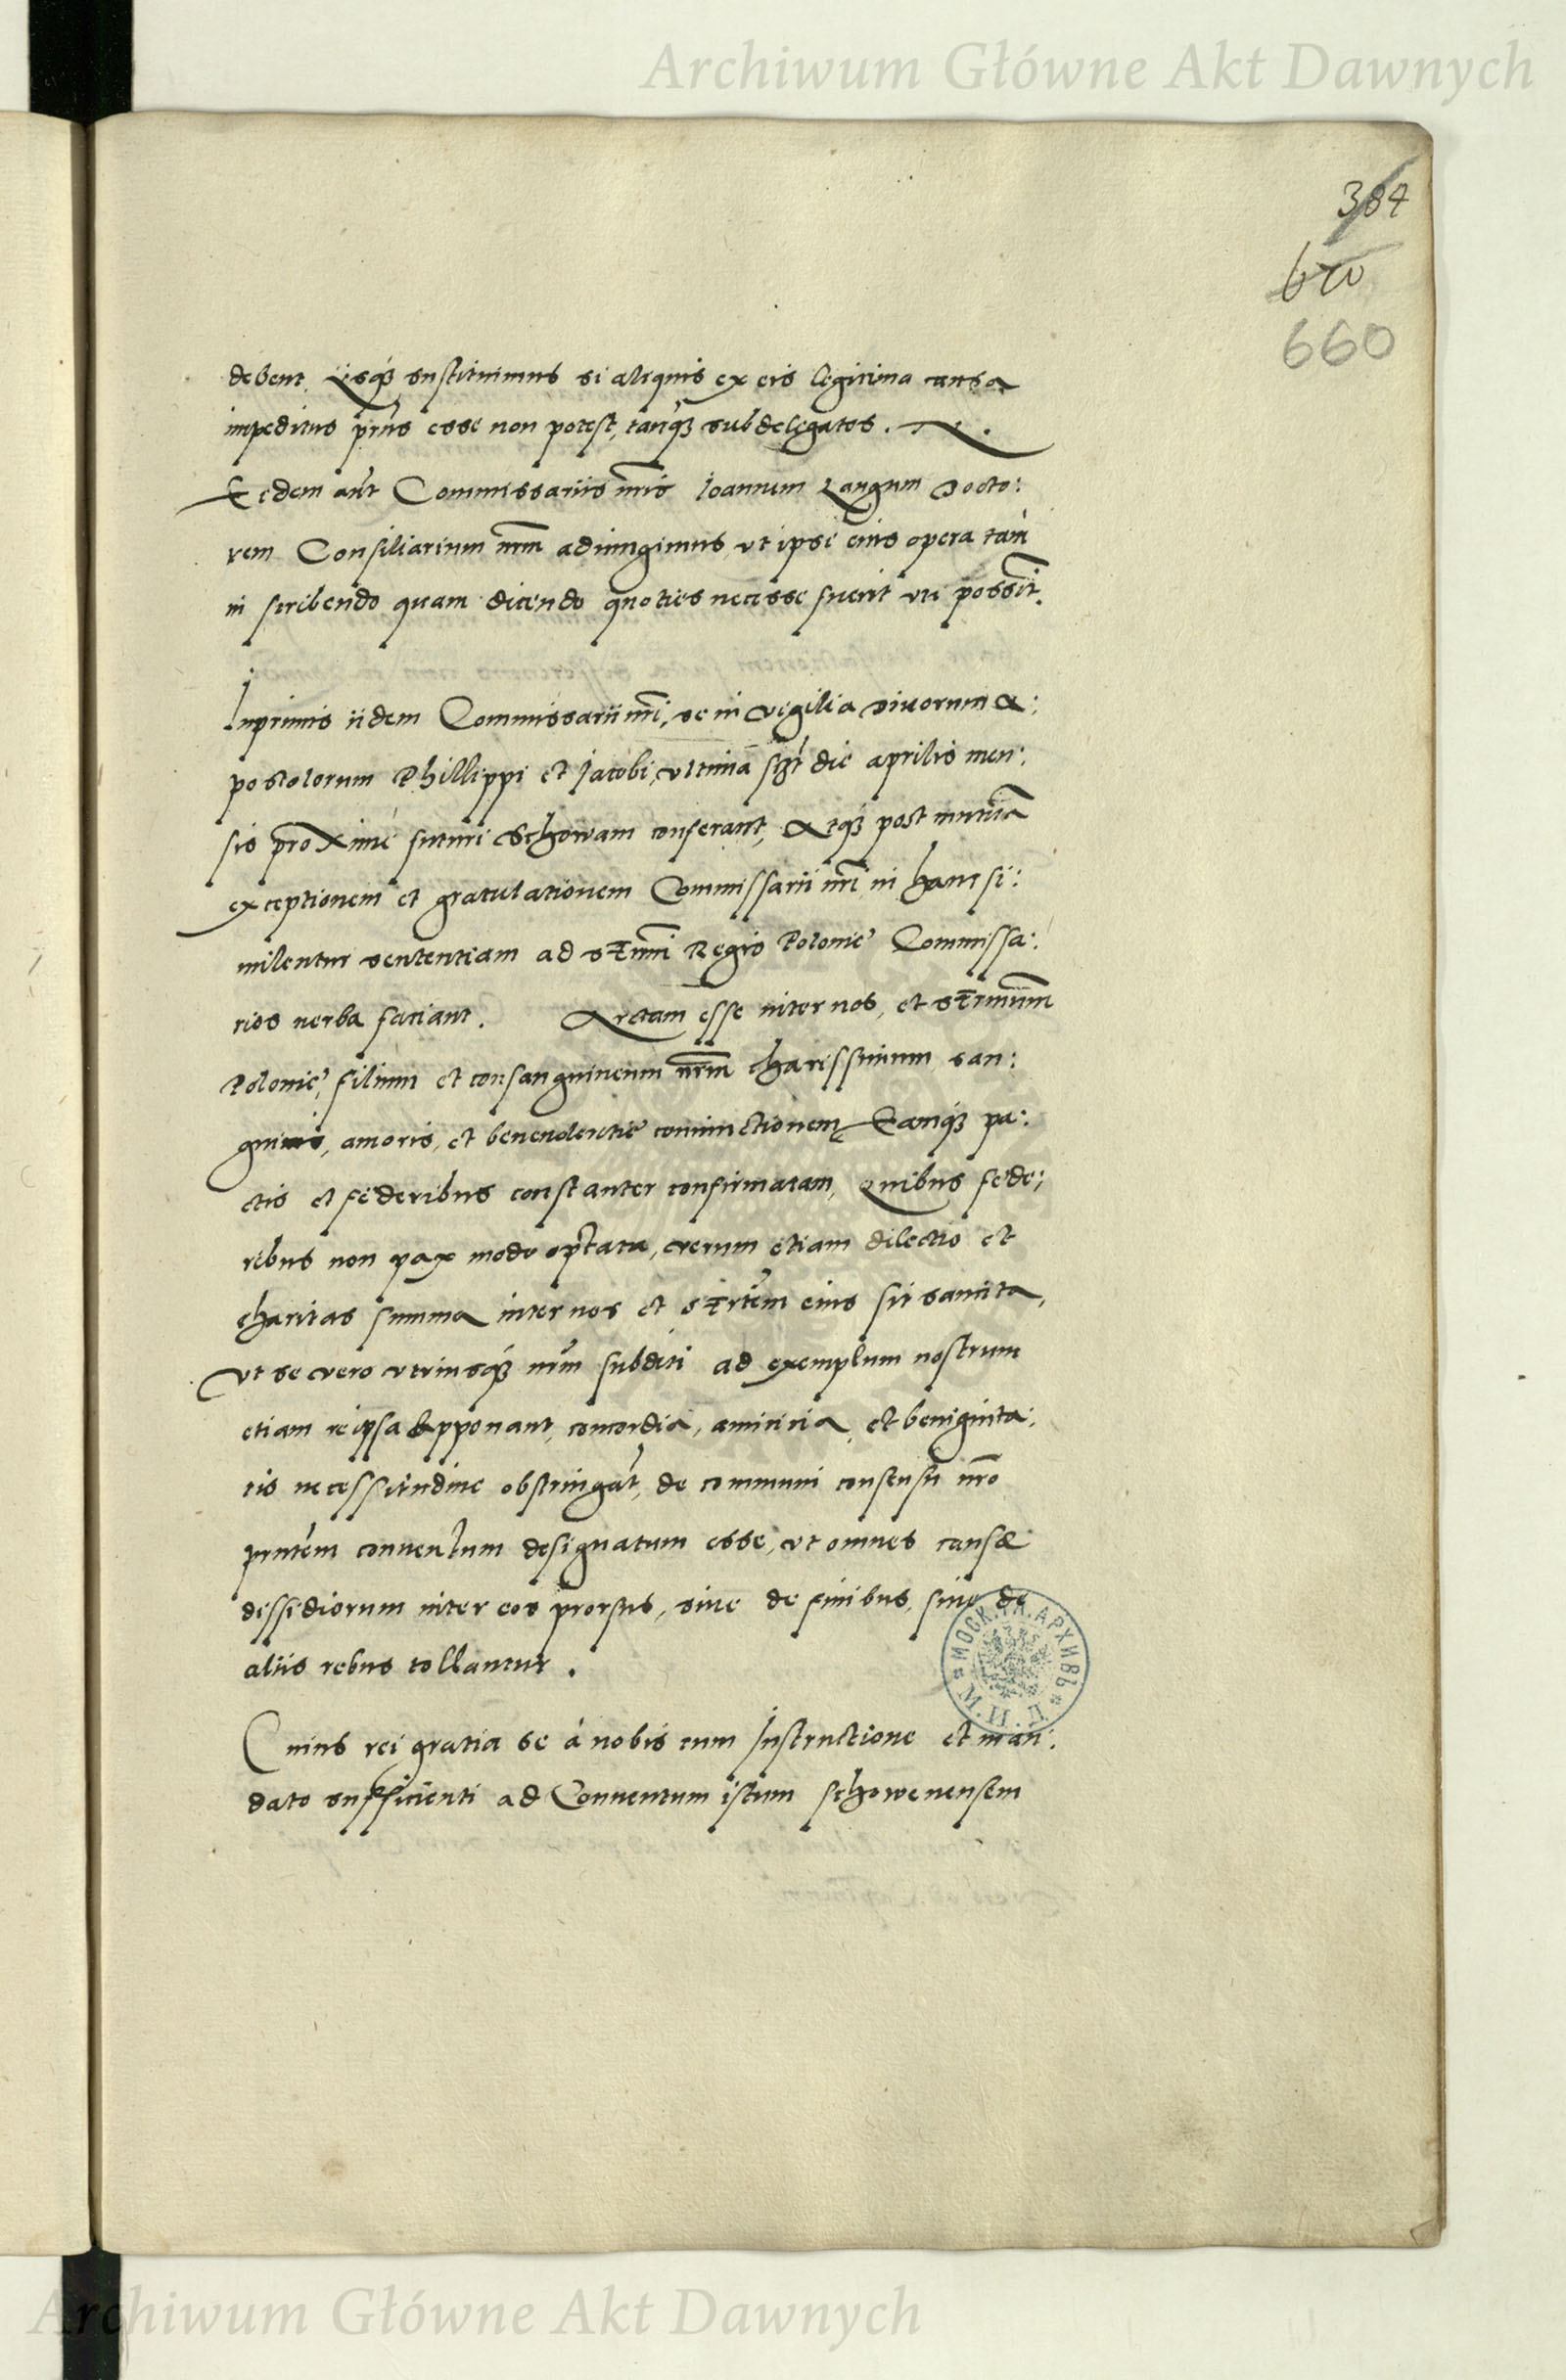 Archiwum Główne Akt Dawnych
384
610
660
debent, iisq́3 sustituimus si aliquis ex eis legitima causa
impeditus pñs esse non potest, tanq̃3 subdelegatos.
Eisdem aũt Commissariis nr̃is Joannem Langum Docto:
rem Consiliarium nr̃m adiungimus, vt ipsi eius opera tam̀
in scribendo quam dicendo quoties necesse fuerit vti possint.
Inprimis iidem Commissarii nr̃i, se in vigilia Diuorum A:
postolorum Phillippi et Jacobi, vltima sct̃ die aprilis men:
sis proxime futuri Schowam conferant, Atq́3 post mutuã
exceptionem et gratulationem Commissarii nr̃i in hanc si:
milentur sententiam ad Ser̃mi Regis Polonie Commissa:
rios verba faciant. Arctam esse inter nos, et Ser̃mum
Polonie, filium et consanguineum nr̃m charissimum san:
guinis, amoris, et beneuolentie coniunctionem, Eamq́3 pa:
ctis et federibus constanter confirmatam, Quibus fede:
ribus non pax modo optata, verum etiam dilectio et
charitas summa inter nos et Ser̃tem eius sit sancita,
Vt se vero vtriusq́3 nr̃m subditi ad exemplum nostrum
etiam reipsa apponant, concordia, amicicia, et benignita:
tis necessitudine obstringãt, de communi consensu nr̃o
pr̃ntem conuentum designatum esse, vt omnes causæ
dissidiorum inter eos prorsus, siue de finibus, siue de
aliis rebus tollantur.
Cuius rei gratia se à nobis cum Instructione et man:
dato sufficienti ad Conuentum istum Schowenensem
МОСК. ГЛ. АРХИВЪ
М. И. Д.
Archiwum Główne Akt Dawnych